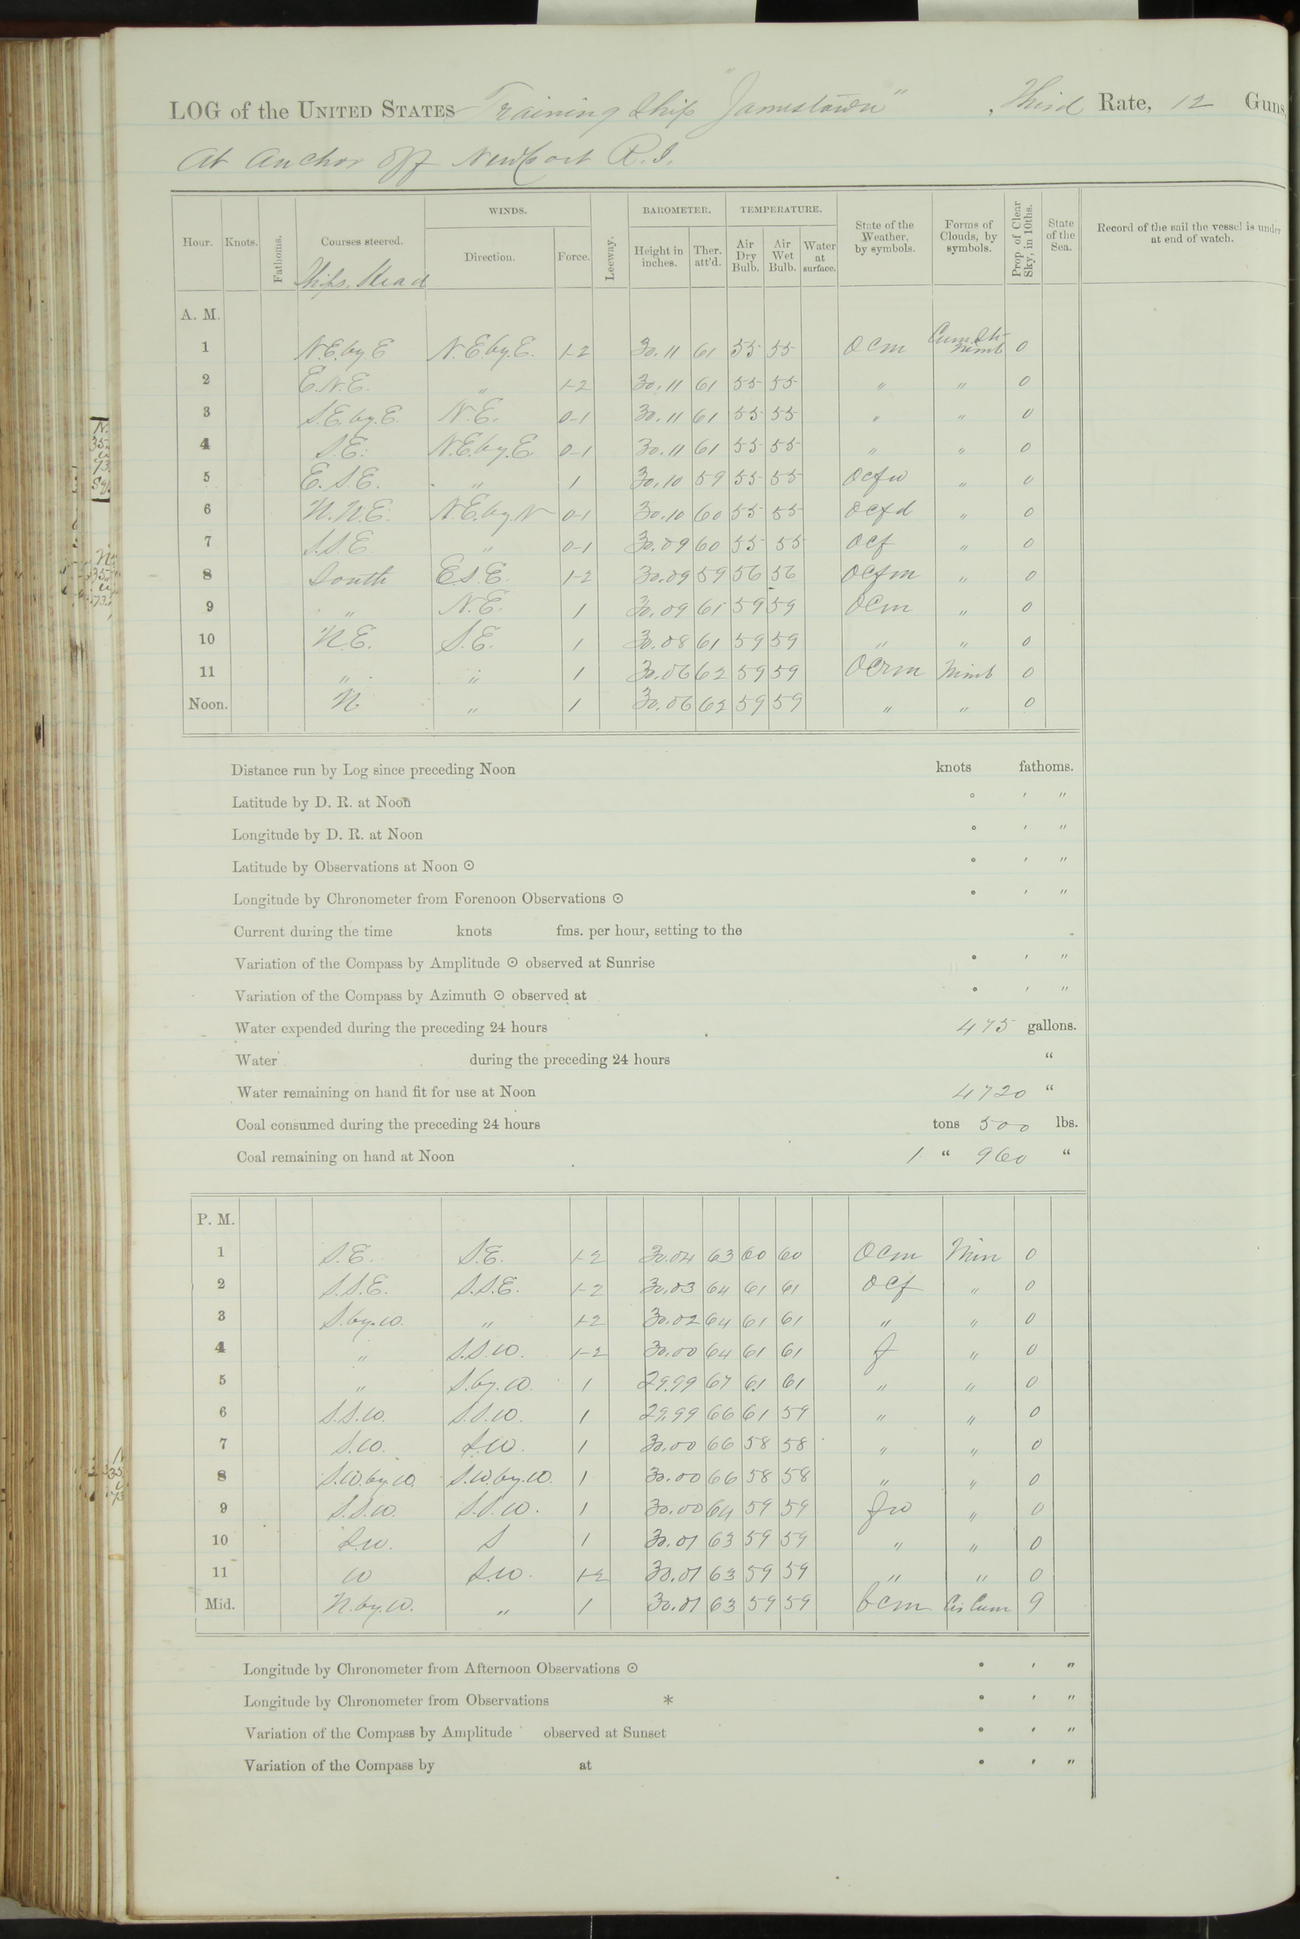 LOG of the UNITED STATES Training Ship "Jamestown", Third Rate, 12 Guns
At Anchor off Newport R.I.
Hour. Knots. Fathoms. Courses steered. Ships Head WINDS. Direction. Force. Leeway. BAROMETER. Height in inches. Ther. att'd. TEMPERATURE. Air Dry Bulb. Air Wet Bulb. Water at surface. State of the Weather, by symbols. Forms of Clouds, by symbols. Prop. of Clear Sky, in 10ths. State of the Sea. Record of the sail the vessel is under at end of watch.
A. M.
1 N.E. by E N.E by. E. 1-2 30.11 61 55 55 ocm Cum. Str. Nimb 0
2 E.N.E. " 1-2 30.11 61 55 55 " " 0
3 S.E. by. E. N.E. 0-1 30.11 61 55 55 " " 0
4 S.E. N.E. by. E 0-1 30.11 61 55 55 " " 0
5 E.S.E. " 1 30.10 59 55 55 ocfw " 0
6 N.N.E. N.E. by. N 0-1 30.10 60 55 55 ocfd " 0
7 S.S.E " 0-1 30.09 60 55 55 ocf " 0
8 South E.S.E. 1-2 30.09 59 56 56 ocfm " 0
9 " N.E. 1 30.09 61 59 59 ocm " 0
10 N.E. S.E. 1 30.08 61 59 59 " " 0
11 " " 1 30.06 62 59 59 ocrm Nimb 0
Noon. N " 1 30.06 62 59 59 " " 0
Distance run by Log since preceding Noon knots fathoms.
Latitude by D. R. at Noon ° ′ ″
Longitude by D. R. at Noon ° ′ ″
Latitude by Observations at Noon ☉ ° ′ ″
Longitude by Chronometer from Forenoon Observations ☉ ° ′ ″
Current during the time knots fms. per hour, setting to the
Variation of the Compass by Amplitude ☉ observed at Sunrise ° ′ ″
Variation of the Compass by Azimuth ☉ observed at ° ′ ″
Water expended during the preceding 24 hours 475 gallons.
Water during the preceding 24 hours "
Water remaining on hand fit for use at Noon 4720 "
Coal consumed during the preceding 24 hours tons 500 lbs.
Coal remaining on hand at Noon 1 " 960 "
P. M.
1 S.E. S.E. 1-2 30.04 63 60 60 ocm Nim 0
2 S.S.E. S.S.E. 1-2 30.03 64 61 61 ocf " 0
3 S. by. W. " 1-2 30.02 64 61 61 " " 0
4 " S.S.W. 1-2 30.00 64 61 61 f " 0
5 " S. by. W. 1 29.99 67 61 61 " " 0
6 S.S.W. S.S.W. 1 29.99 66 61 59 " " 0
7 S.W. S.W. 1 30.00 66 58 58 " " 0
8 S.W. by. W. S.W. by. W. 1 30.00 66 58 58 " " 0
9 S.S.W. S.S.W. 1 30.00 64 59 59 fw " 0
10 S.W. S 1 30.01 63 59 59 " " 0
11 W S.W. 1-2 30.01 63 59 59 " " 0
Mid. N. by. W. " 1 30.01 63 59 59 bcm Cir Cum 9
Longitude by Chronometer from Afternoon Observations ☉ ° ′ ″
Longitude by Chronometer from Observations * ° ′ ″
Variation of the Compass by Amplitude observed at Sunset ° ′ ″
Variation of the Compass by at ° ′ ″